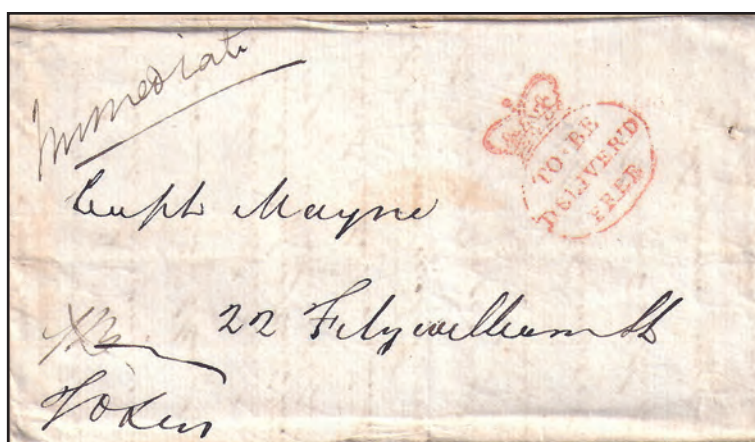 Immediate
TO BE
DELIVER'D
FREE
Mayne
22 Fitzwilliam St